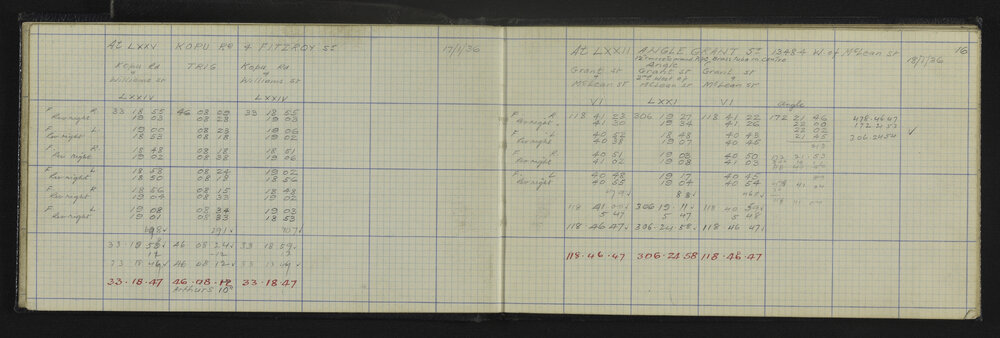 At LXXV KOPU Rd & FITZROY St 17/1/36
Kopu Rd TRIG Kopu Rd
& &
Williams St Williams St
LXXIV LXXIV
F R 33 18 55 46 08 09 33 18 55
Rev right 19 03 08 28 19 03
F L 19 00 08 23 19 06
Rev right 18 53 08 18 19 02
F R 18 48 08 18 18 51
Rev right 19 02 08 38 19 06
F L 18 58 08 24 19 02
Rev right 18 50 08 18 18 56
F R 18 56 08 15 18 48
Rev right 19 04 08 33 19 02
F L 19 08 08 34 19 03
Rev right 19 01 08 33 18 53
698 291 707
33 18 58 46 08 24 33 18 59
12 -12 12
33 18 46 46 08 12 33 18 47
33·18·47 46·08·12 33·18·47
Arthurs 10"
At LXXII ANGLE GRANT St 1348.4 W. of McLean St 16
Brass tube in centre 18/1/36
Angle
Grant St Grant St Grant St
& 2nd West of &
McLean St McLean St McLean St
VI LXXI VI Angle
F R 118 41 23 306 19 27 118 41 22 172 21 46 478.46 47
Rev right 41 30 19 34 41 26 22 00 172 21 53
F L 40 52 18 48 40 43 22 02 306 24 54
Rev right 40 38 19 07 40 45 21 45
F R 40 51 19 03 40 50 172 21 53
Rev right 41 02 19 08 41 03
F L 40 48 19 17 40 45
Rev right 40 55 19 04 40 54
118 41 306 19 11 118 40 59
5 47 5 47 5 48
118 46 47 306·24·58 118 46 47
118·46·47 306·24·58 118·46·47